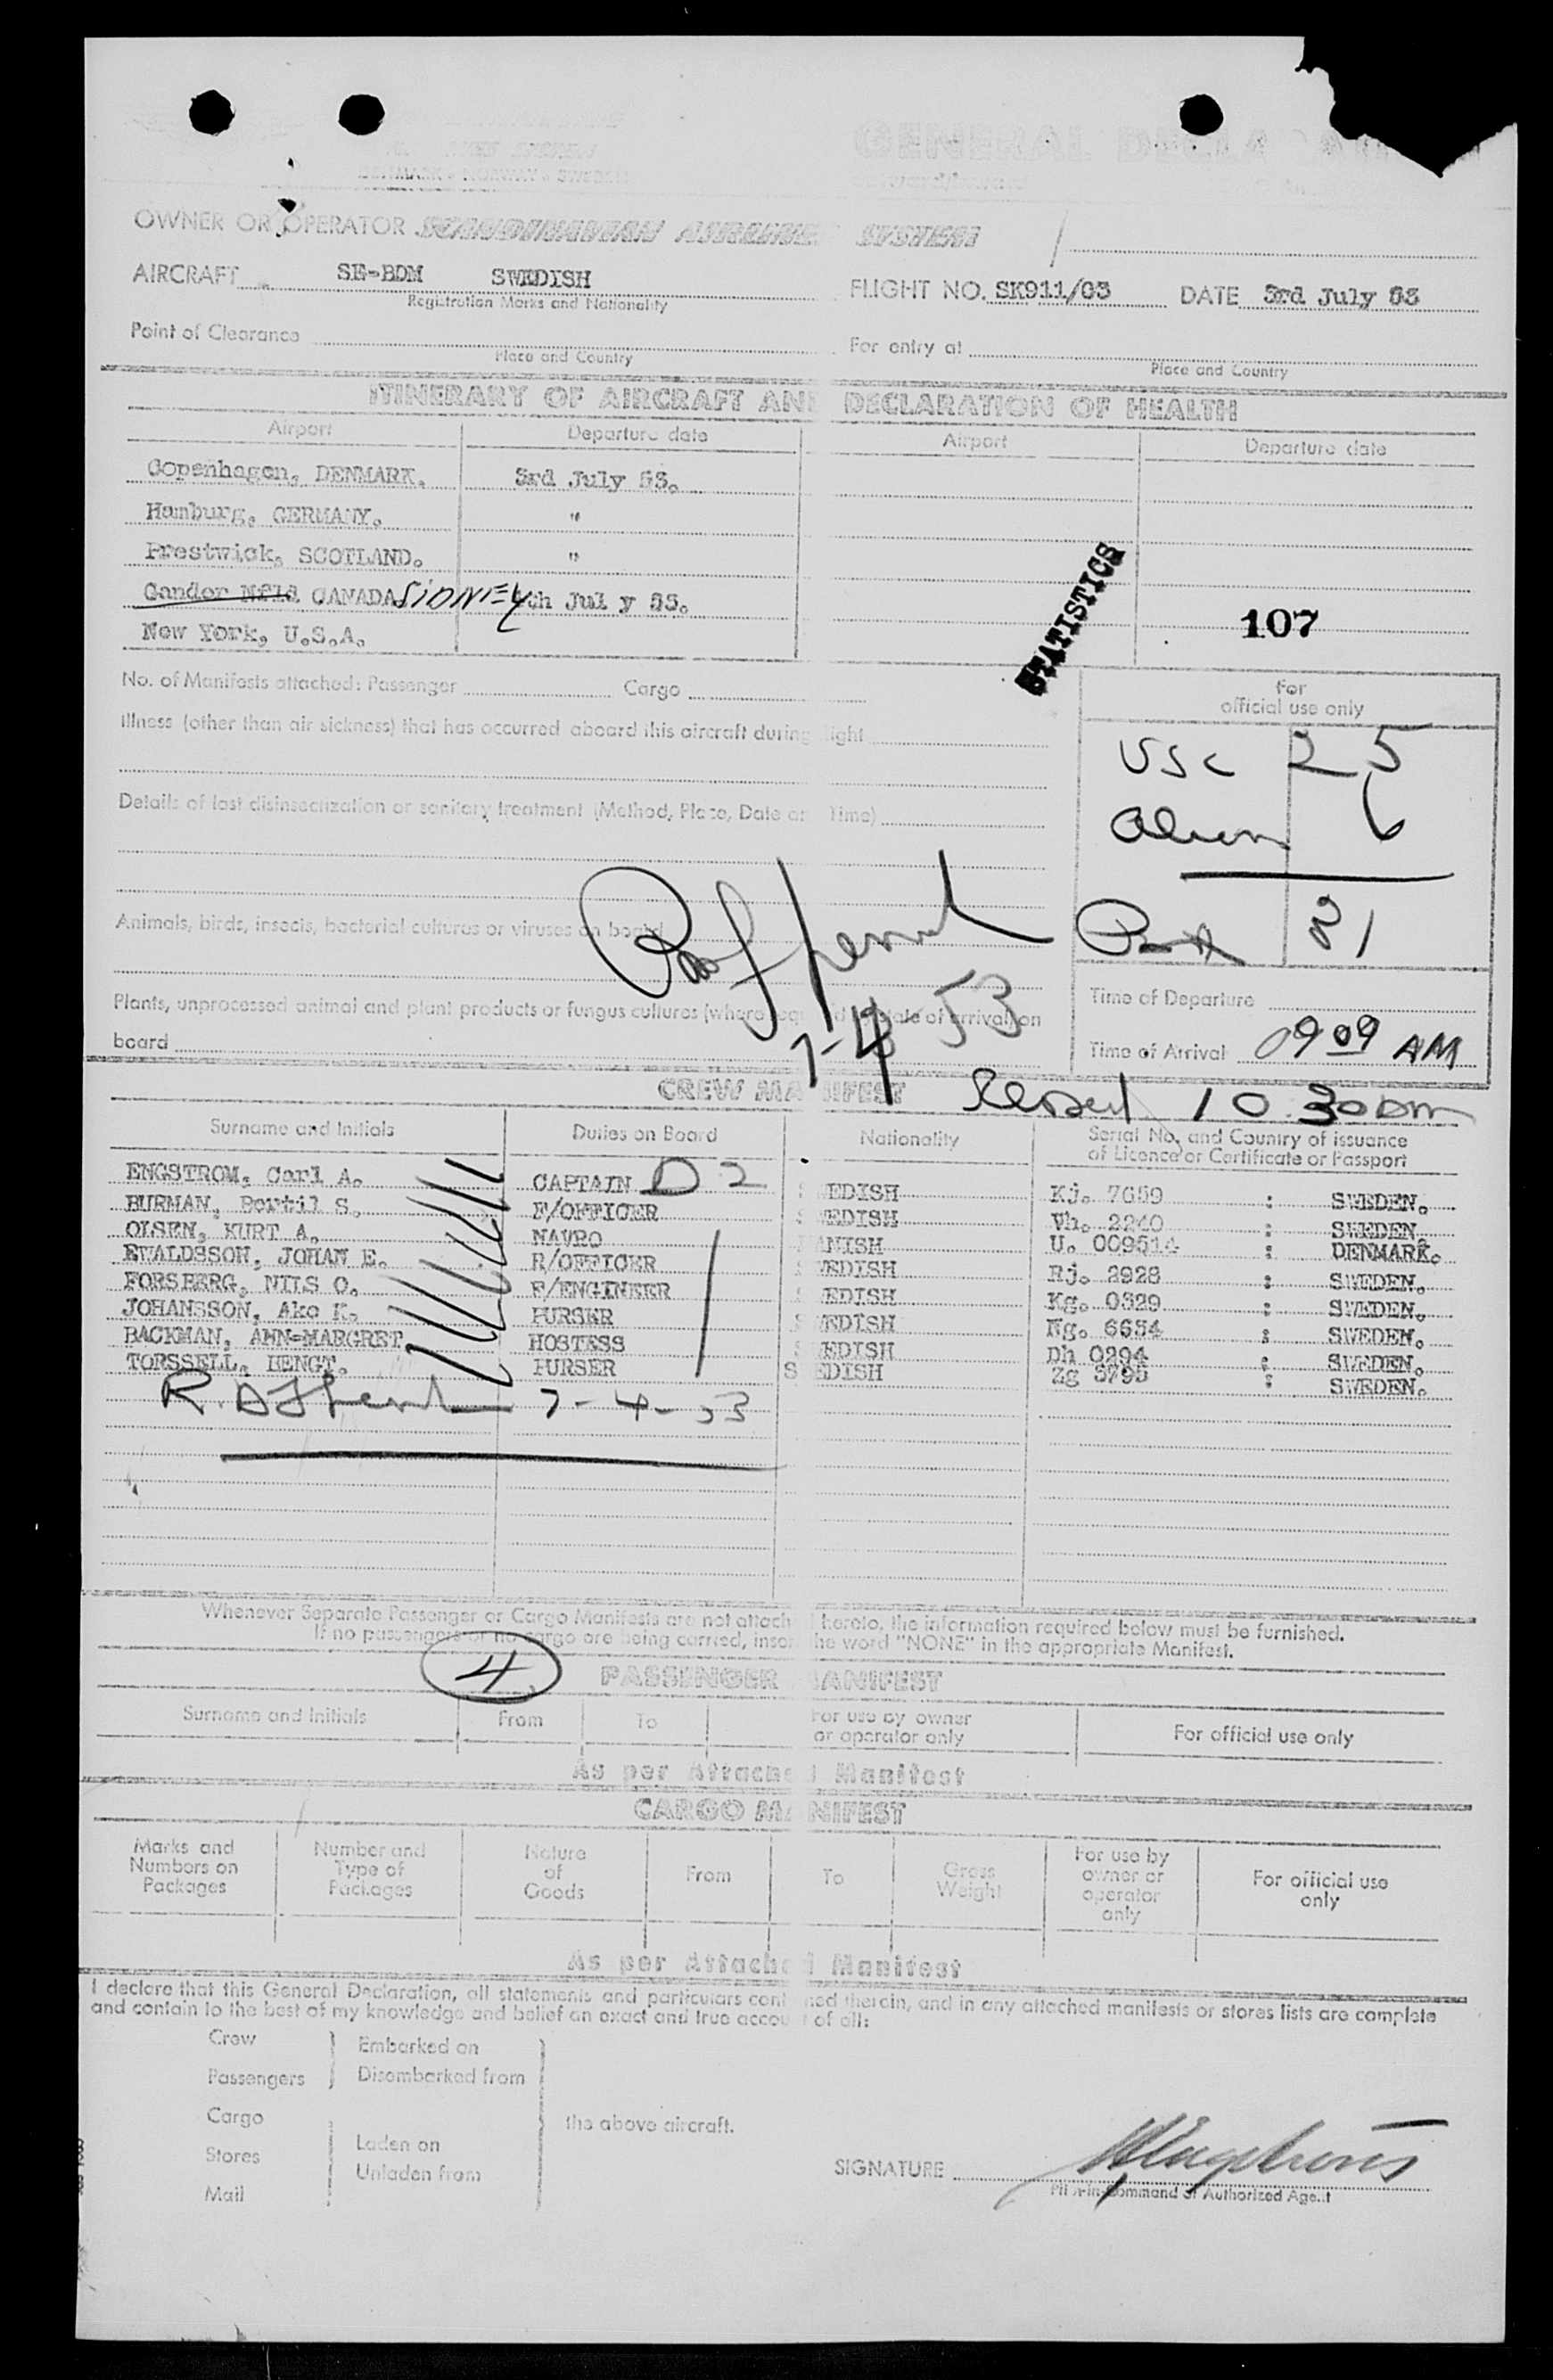 GENERAL DECLA
DENMARK - NORWAY - SWEDEN
OWNER OR OPERATOR SCANDINAVIAN AIRLINES SYSTEM
AIRCRAFT SE-BDM SWEDISH
Registration Marks and Nationality
FLIGHT NO. SK911/03 DATE 3rd July 53
Point of Clearance
Place and Country
For entry at
Place and Country
ITINERARY OF AIRCRAFT AND DECLARATION OF HEALTH
Airport Departure date Airport Departure date
Copenhagen, DENMARK. 3rd July 53.
Hamburg, GERMANY. "
Prestwick, SCOTLAND. "
Gander Nfld CANADA SIDNEY 4th Jul y 53.
New York, U.S.A.
STATISTICS
107
No. of Manifests attached: Passenger Cargo
For
official use only
Illness (other than air sickness) that has occurred aboard this aircraft during light
USC 25
Alien 6
Details of last disinsectization or sanitary treatment (Method, Place, Date an Time)
31
Animals, birds, insects, bacterial cultures or viruses on board
7-4-53
Plants, unprocessed animal and plant products or fungus cultures (where req d date of arrival) on
board
Time of Departure
Time of Arrival 0909 AM
CREW MA NIFEST
10 30 am
Surname and Initials Duties on Board Nationality Serial No, and Country of issuance
of Licence or Certificate or Passport
ENGSTROM, Carl A. CAPTAIN D 2 S EDISH Kj. 7659 : SWEDEN.
BURMAN, Bertil S. F/OFFICER S EDISH Vh. 2240 : SWEDEN.
OLSEN, KURT A. NAVRO ANISH U. 009514 : DENMARK.
EWALDSSON, JOHAN E. R/OFFICER S WEDISH Rj. 2928 : SWEDEN.
FORSBERG, NILS O. F/ENGINEER S EDISH Kg. 0329 : SWEDEN.
JOHANSSON, Ake K. PURSER S WEDISH Ng. 6654 : SWEDEN.
BACKMAN, ANN-MARGRET HOSTESS S EDISH Dh 0294 : SWEDEN.
TORSSELL, BENGT. PURSER S EDISH Zg 3795 : SWEDEN.
7-4-53
Whenever Separate Passenger or Cargo Manifests are not attach hereto, the information required below must be furnished.
If no passengers or no cargo are being carried, inser he word "NONE" in the appropriate Manifest.
4
PASSENGER MANIFEST
Surname and Initials From To For use by owner
or operator only For official use only
As per Attache d Manifest
CARGO MA NIFEST
Marks and
Numbers on
Packages
Number and
Type of
Packages
Nature
of
Goods
From
To
Gross
Weight
For use by
owner or
operator
only
For official use
only
As per Attache d Manifest
I declare that this General Declaration, all statements and particulars cont ned therein, and in any attached manifests or stores lists are complete
and contain to the best of my knowledge and belief an exact and true accou t of all:
Crew Embarked on
Passengers Disembarked from
Cargo the above aircraft.
Stores Laden on
Unladen from
Mail
SIGNATURE
Pilot-in-Command or Authorized Agent